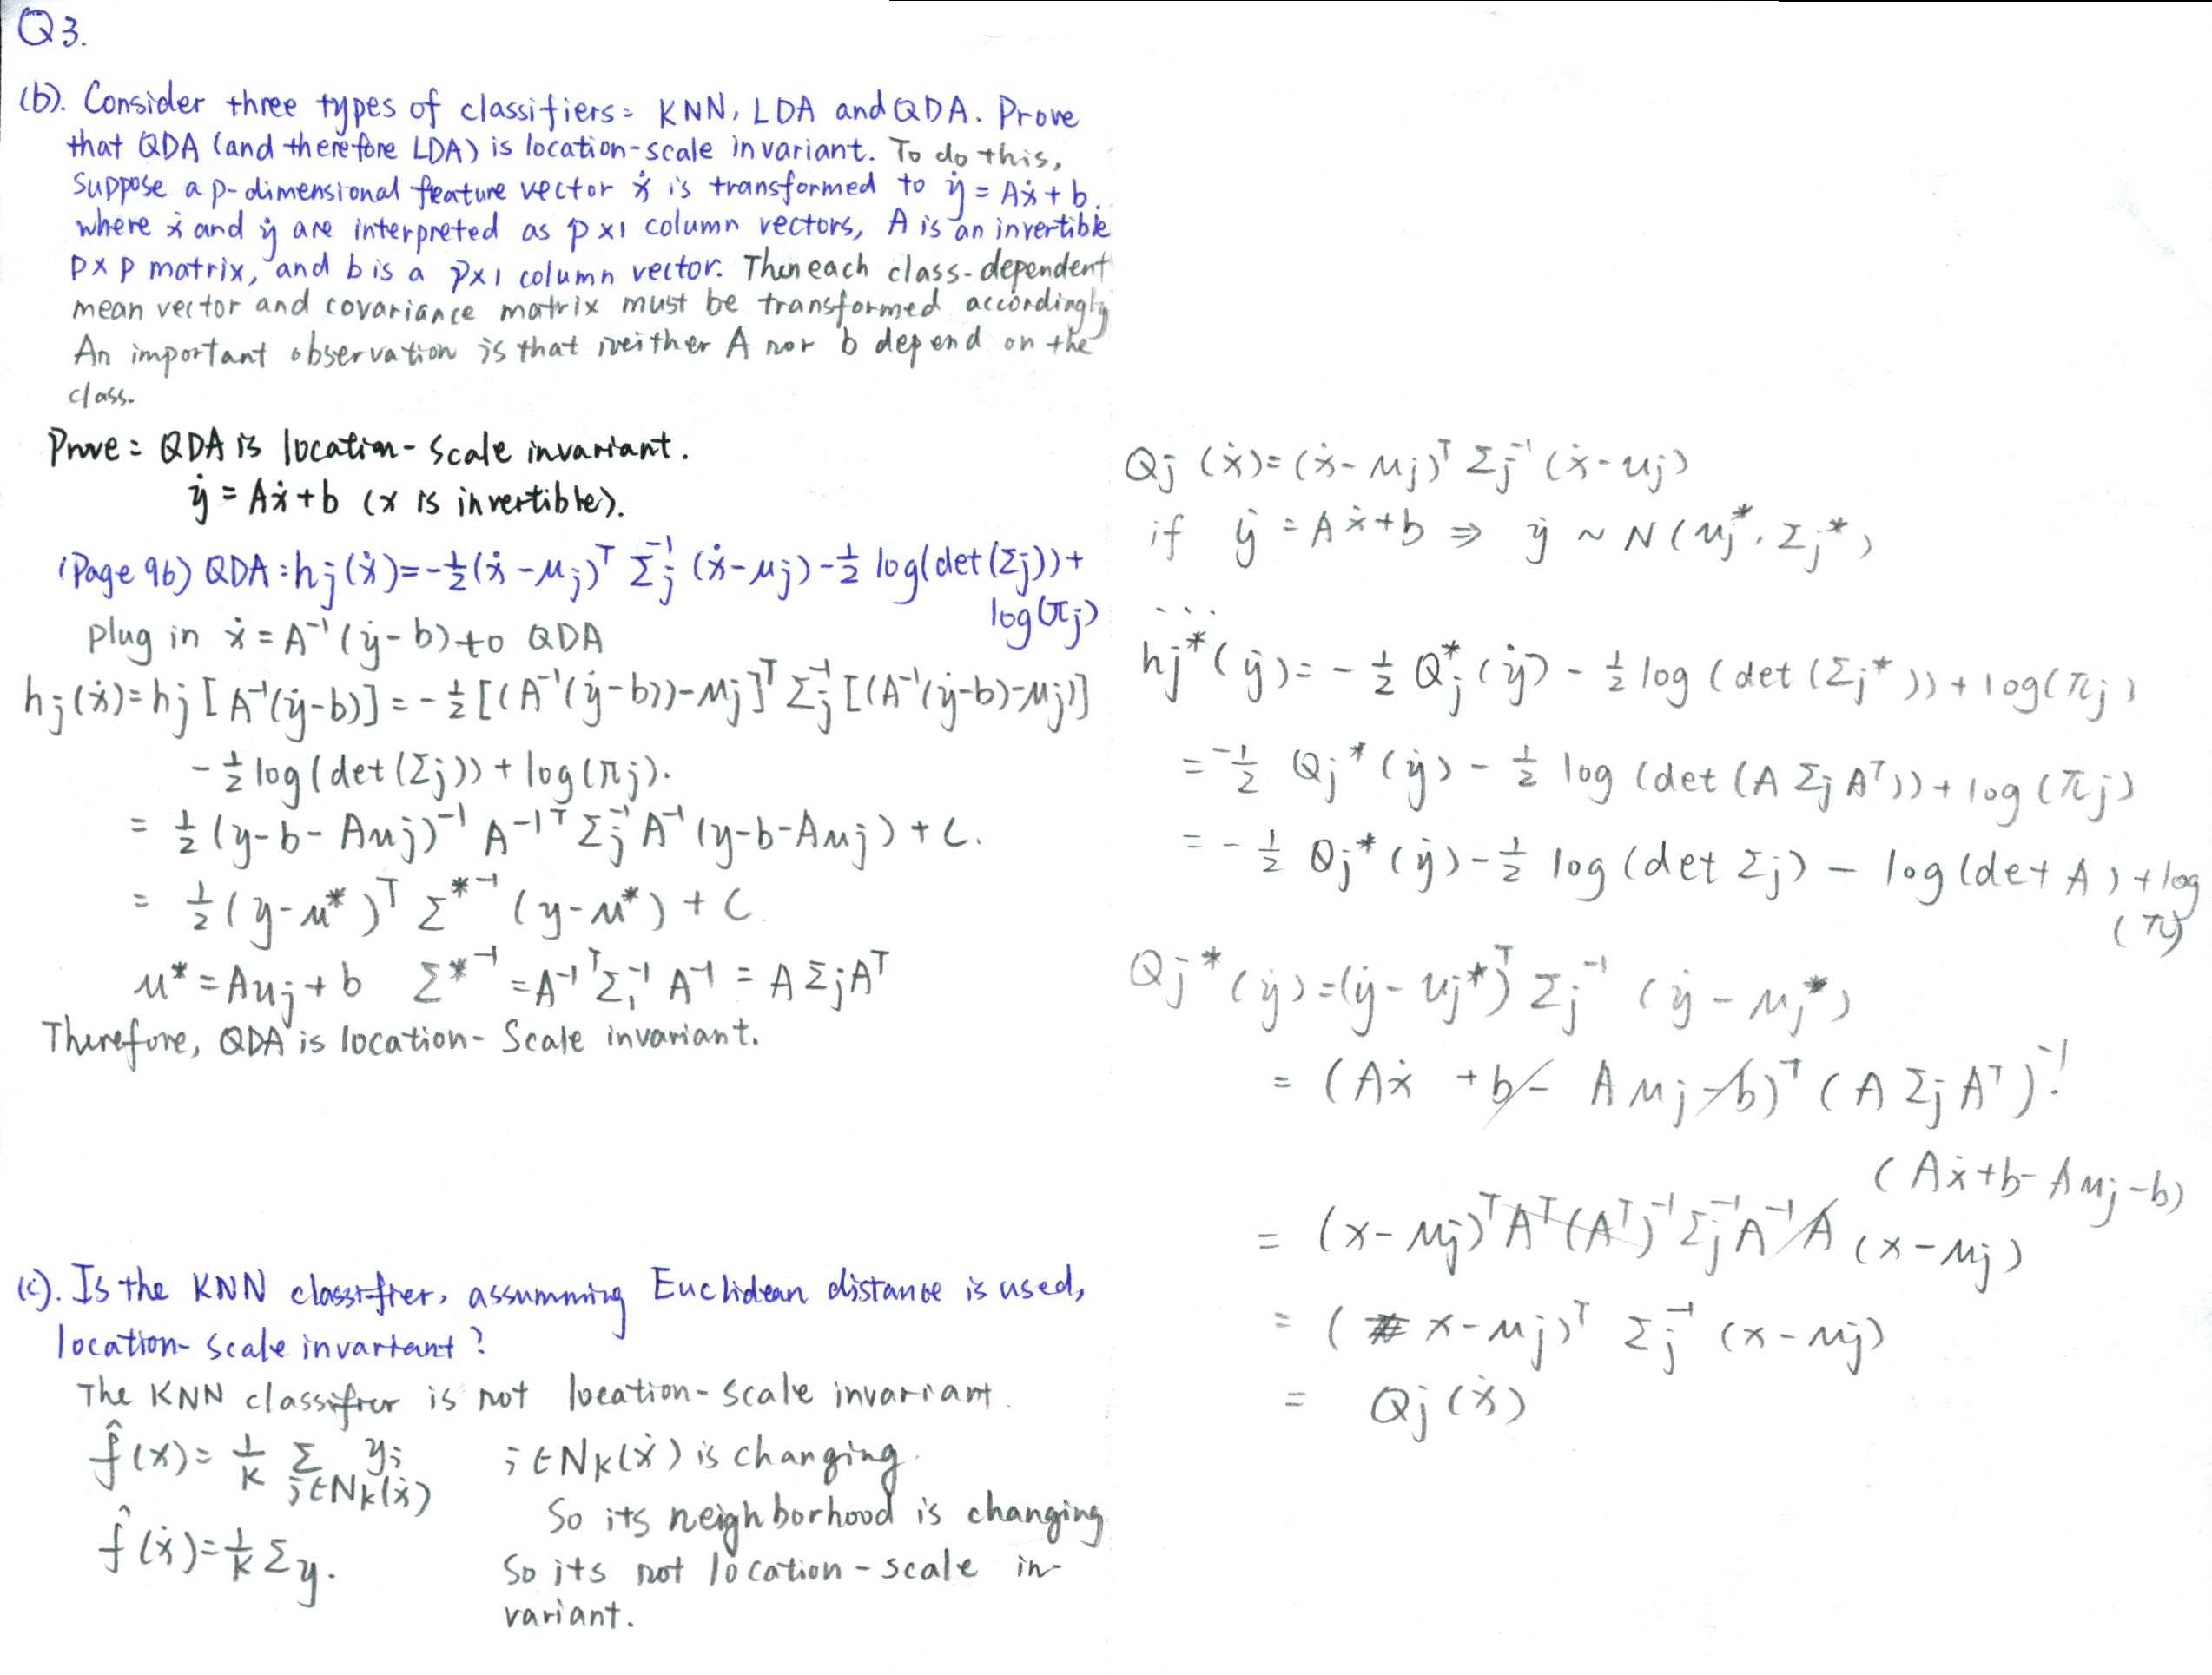 Q3.
(b). Consider three types of classifiers: KNN, LDA and QDA. Prove
that QDA (and therefore LDA) is location-scale invariant. To do this,
Suppose a p-dimensional feature vector ẋ is transformed to ẏ = Aẋ + b.
where ẋ and ẏ are interpreted as p×1 column vectors, A is an invertible
p×p matrix, and b is a p×1 column vector. Then each class-dependent
mean vector and covariance matrix must be transformed accordingly
An important observation is that neither A nor b depend on the
class.
Prove: QDA is location-scale invariant.
ẏ = Aẋ + b (x is invertible).
(Page 96) QDA: hj(ẋ) = -½(ẋ-μj)ᵀ Σj⁻¹ (ẋ-μj) - ½ log(det(Σj)) +
log(πj)
plug in ẋ = A⁻¹(ẏ-b) to QDA
hj(ẋ) = hj[A⁻¹(ẏ-b)] = -½[(A⁻¹(ẏ-b))-μj]ᵀ Σj⁻¹ [(A⁻¹(ẏ-b)-μj)]
-½ log(det(Σj)) + log(πj).
= ½(y-b-Auj)⁻¹ A⁻¹ᵀ Σj⁻¹ A⁻¹ (y-b-Auj) + C.
= ½(y-u*)ᵀ Σ*⁻¹ (y-u*) + C
u* = Auj + b Σ*⁻¹ = A⁻¹ᵀ Σ₁⁻¹ A⁻¹ = A Σj Aᵀ
Therefore, QDA is location-Scale invariant.
(c). Is the KNN classifier, assumming Euclidean distance is used,
location-scale invariant?
The KNN classifier is not location-scale invariant.
f̂(x) = 1/K Σ yi i∈NK(ẋ) is changing.
i∈NK(ẋ)
So its neighborhood is changing
f̂(ẋ) = 1/K Σy.
So its not location-scale in-
variant.
Qj(ẋ) = (ẋ-μj)ᵀ Σj⁻¹ (ẋ-uj)
if ẏ = Aẋ+b ⇒ ẏ ~ N(uj*, Σj*)
...
hj*(ẏ) = -½ Qj*(ẏ) - ½ log(det(Σj*)) + log(πj)
= -½ Qj*(ẏ) - ½ log(det(A Σj Aᵀ)) + log(πj)
= -½ Qj*(ẏ) - ½ log(det Σj) - log(det A) + log
(πj)
Qj*(ẏ) = (ẏ-uj*)ᵀ Σj⁻¹ (ẏ-μj*)
= (Aẋ + b - Aμj - b)ᵀ (A Σj Aᵀ)⁻¹.
(Aẋ+b-Auj-b)
= (x-μj)ᵀ Aᵀ (Aᵀ)⁻¹ Σj⁻¹ A⁻¹ A (x-μj)
= (x-μj)ᵀ Σj⁻¹ (x-μj)
= Qj(ẋ)